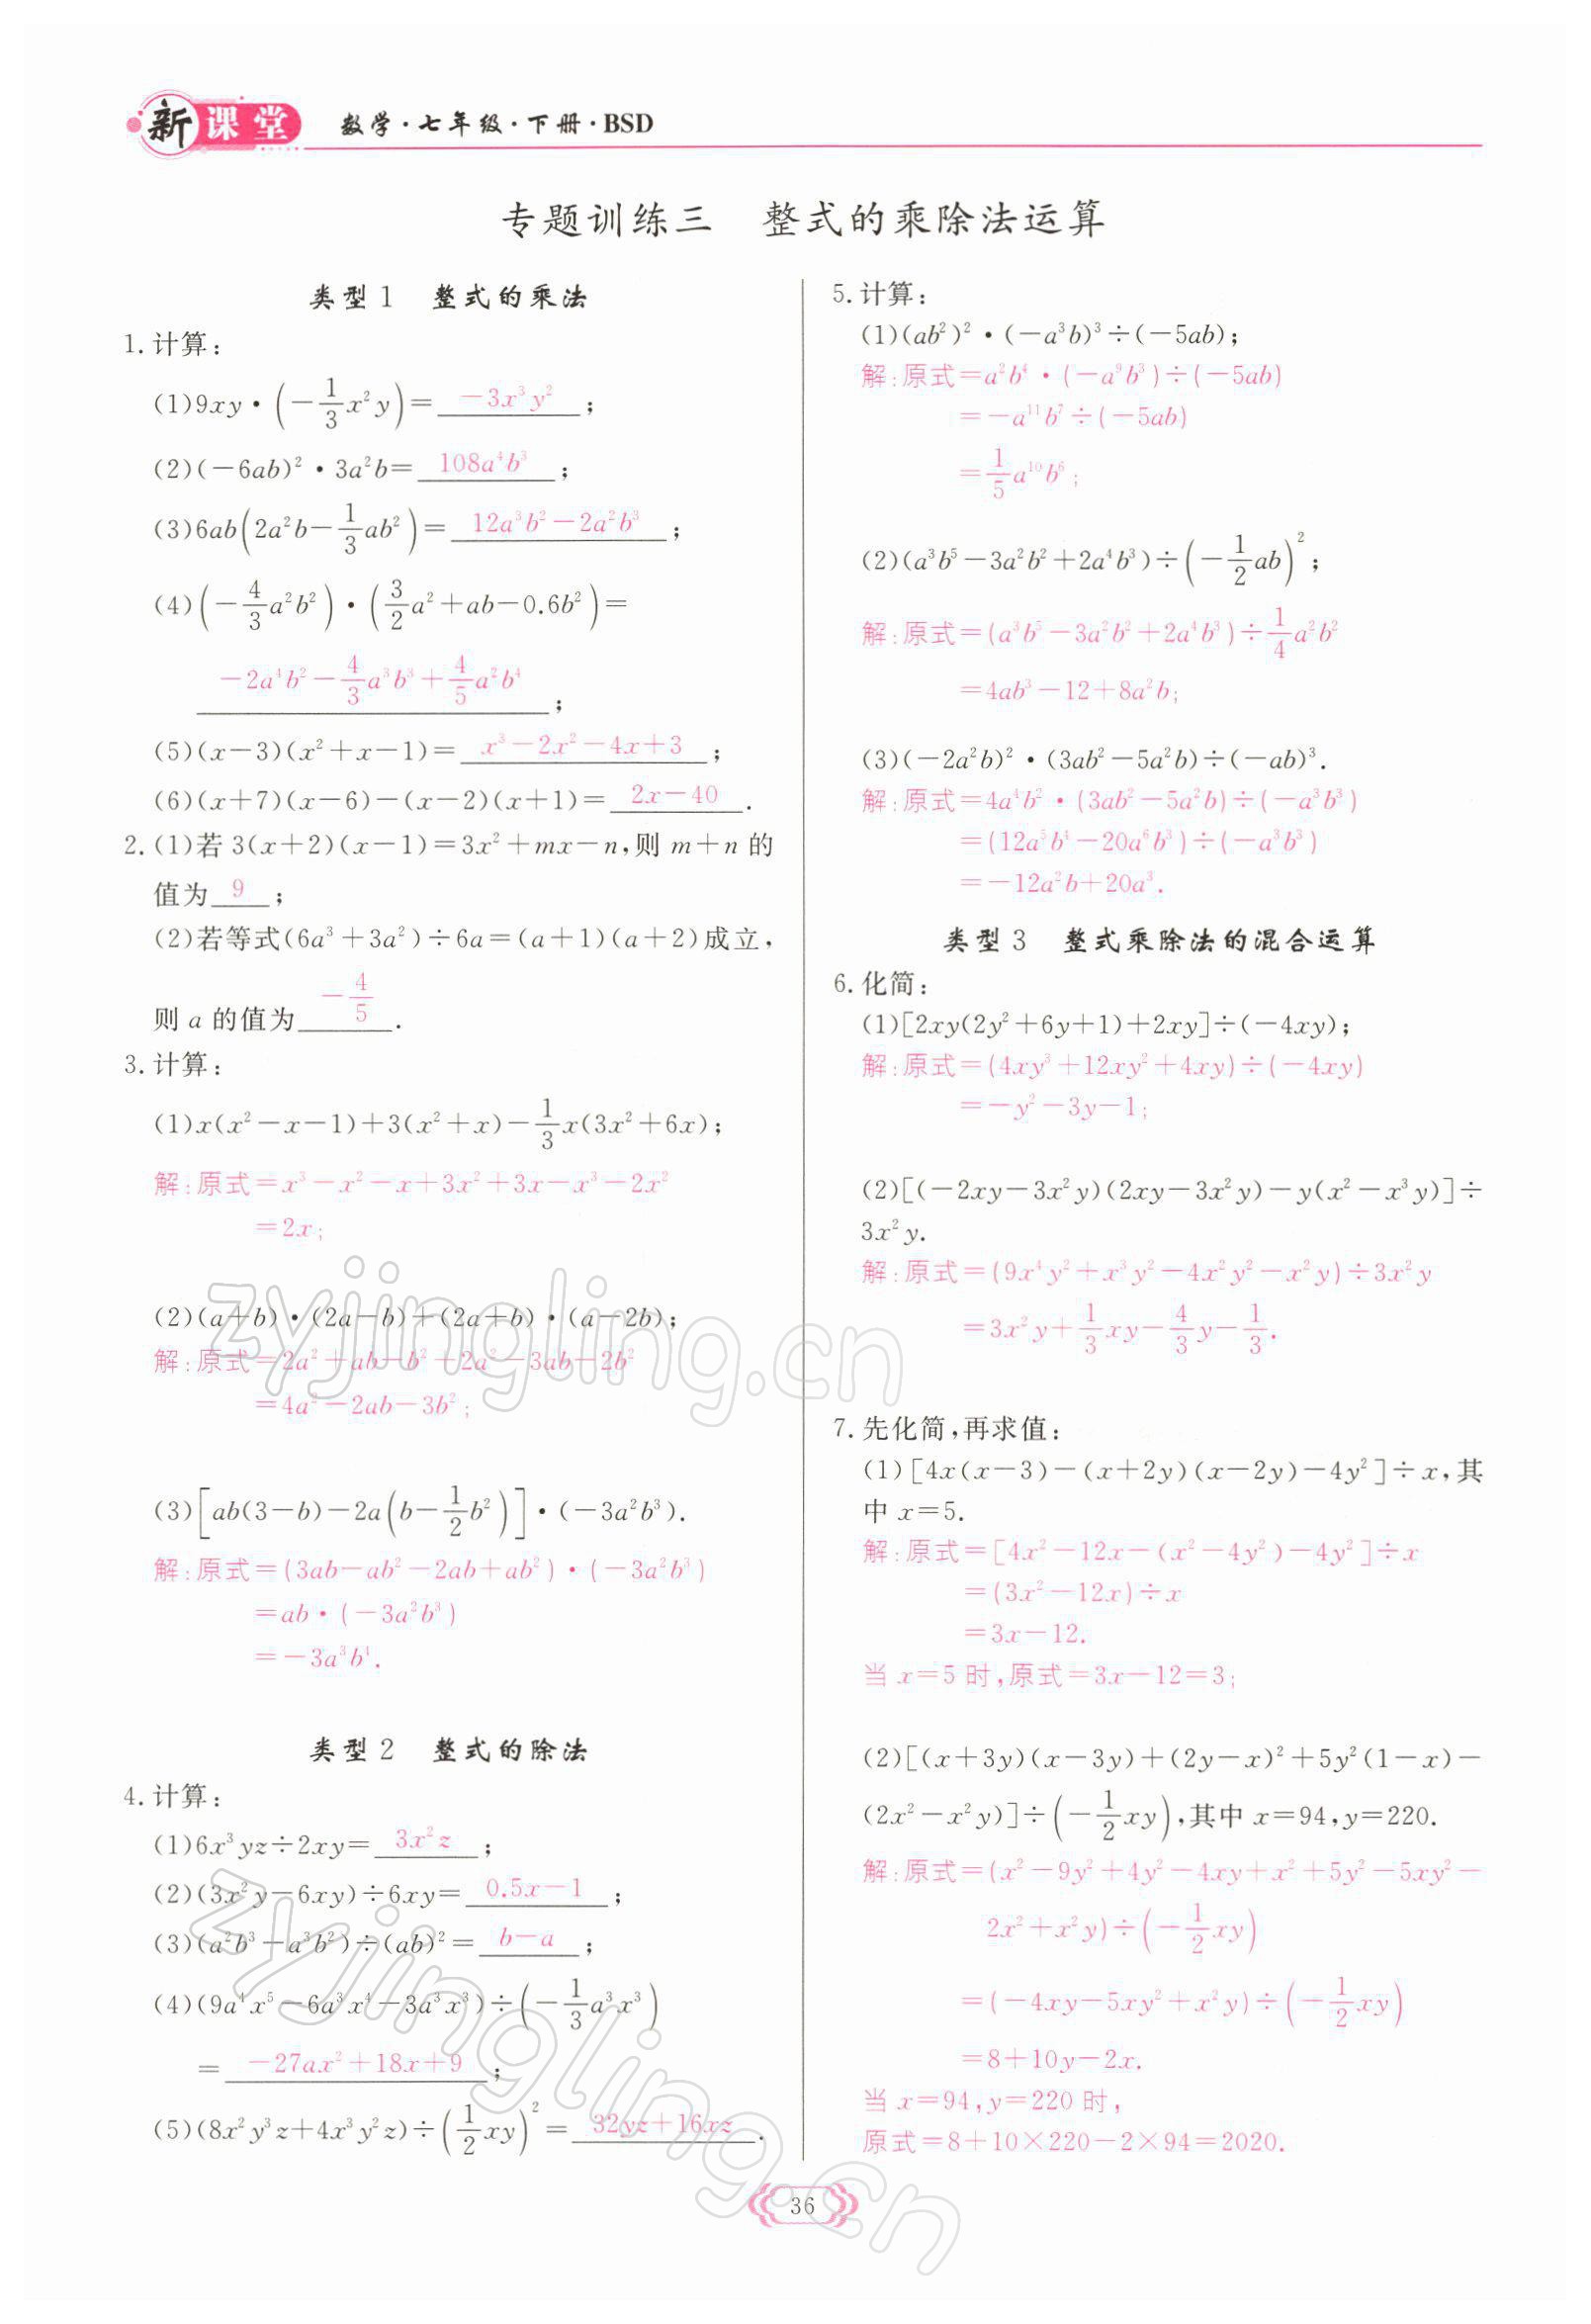 新课堂 数学·七年级·下册·BSD
专题训练三 整式的乘除法运算
类型1 整式的乘法
1.计算:
(1)9xy·(-1/3x²y)=-3x³y²;
(2)(-6ab)²·3a²b=108a⁴b³;
(3)6ab(2a²b-1/3ab²)=12a³b²-2a²b³;
(4)(-4/3a²b²)·(3/2a²+ab-0.6b²)=
-2a⁴b²-4/3a³b³+4/5a²b⁴;
(5)(x-3)(x²+x-1)=x³-2x²-4x+3;
(6)(x+7)(x-6)-(x-2)(x+1)=2x-40.
2.(1)若3(x+2)(x-1)=3x²+mx-n,则m+n的
值为9;
(2)若等式(6a³+3a²)÷6a=(a+1)(a+2)成立,
则a的值为-4/5.
3.计算:
(1)x(x²-x-1)+3(x²+x)-1/3x(3x²+6x);
解:原式=x³-x²-x+3x²+3x-x³-2x²
=2x;
(2)(a+b)·(2a-b)+(2a+b)·(a-2b);
解:原式=2a²+ab-b²+2a²-3ab-2b²
=4a²-2ab-3b²;
(3)[ab(3-b)-2a(b-1/2b²)]·(-3a²b³).
解:原式=(3ab-ab²-2ab+ab²)·(-3a²b³)
=ab·(-3a²b³)
=-3a³b⁴.
类型2 整式的除法
4.计算:
(1)6x³yz÷2xy=3x²z;
(2)(3x²y-6xy)÷6xy=0.5x-1;
(3)(a²b³-a³b²)÷(ab)²=b-a;
(4)(9a⁴x⁵-6a³x⁴-3a³x³)÷(-1/3a³x³)
=-27ax²+18x+9;
(5)(8x²y³z+4x³y²z)÷(1/2xy)²=32yz+16xz.
5.计算:
(1)(ab²)²·(-a³b)³÷(-5ab);
解:原式=a²b⁴·(-a⁹b³)÷(-5ab)
=-a¹¹b⁷÷(-5ab)
=1/5a¹⁰b⁶;
(2)(a³b⁵-3a²b²+2a⁴b³)÷(-1/2ab)²;
解:原式=(a³b⁵-3a²b²+2a⁴b³)÷1/4a²b²
=4ab³-12+8a²b;
(3)(-2a²b)²·(3ab²-5a²b)÷(-ab)³.
解:原式=4a⁴b²·(3ab²-5a²b)÷(-a³b³)
=(12a⁵b⁴-20a⁶b³)÷(-a³b³)
=-12a²b+20a³.
类型3 整式乘除法的混合运算
6.化简:
(1)[2xy(2y²+6y+1)+2xy]÷(-4xy);
解:原式=(4xy³+12xy²+4xy)÷(-4xy)
=-y²-3y-1;
(2)[(-2xy-3x²y)(2xy-3x²y)-y(x²-x³y)]÷
3x²y.
解:原式=(9x⁴y²+x³y²-4x²y²-x²y)÷3x²y
=3x²y+1/3xy-4/3y-1/3.
7.先化简,再求值:
(1)[4x(x-3)-(x+2y)(x-2y)-4y²]÷x,其
中x=5.
解:原式=[4x²-12x-(x²-4y²)-4y²]÷x
=(3x²-12x)÷x
=3x-12.
当x=5时,原式=3x-12=3;
(2)[(x+3y)(x-3y)+(2y-x)²+5y²(1-x)-
(2x²-x²y)]÷(-1/2xy),其中x=94,y=220.
解:原式=(x²-9y²+4y²-4xy+x²+5y²-5xy²-
2x²+x²y)÷(-1/2xy)
=(-4xy-5xy²+x²y)÷(-1/2xy)
=8+10y-2x.
当x=94,y=220时,
原式=8+10×220-2×94=2020.
36
zyjingling.cn
zyjingling.cn